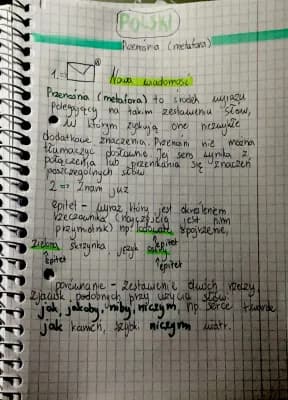 POLSKI
Przenośnia (metafora)
1. ⇒ Nowa wiadomość
Przenośnia (metafora) to środek wyrazu
polegający na takim zestawieniu słów,
w którym zyskują one niezwykłe
dodatkowe znaczenia. Przenośni nie można
tłumaczyć dosłownie. Jej sens wynika z
połączenia lub przenikania się znaczeń
poszczególnych słów
2 ⇒ Znam już
epitet - wyraz, który jest określeniem
rzeczownika (najczęściej jest nim
przymiotnik) np. spojrzenie,
zielona skrzynka, język
epitet
epitet
epitet
porównanie - zestawienie dwóch rzeczy,
zjawisk podobnych przy użyciu słów:
jak, jakoby, niby, niczym, np. serce twarde
jak kamień, szybki niczym wiatr.